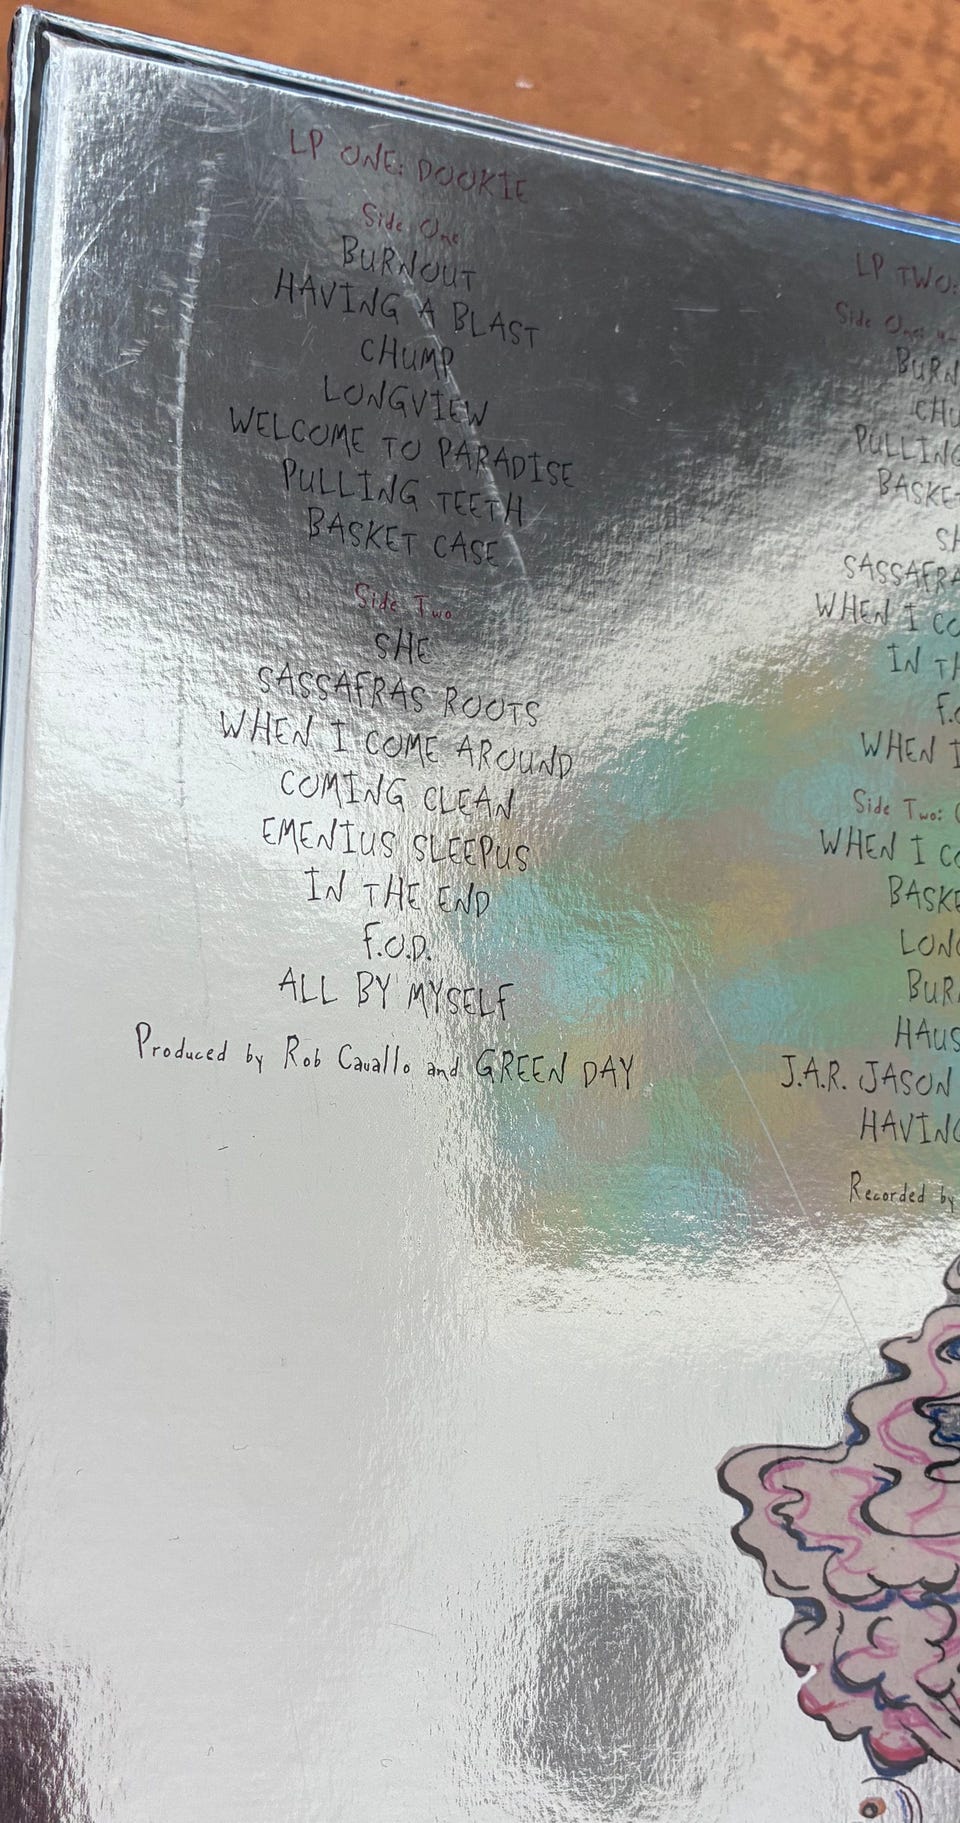 LP ONE: DOOKIE
Side One
BURNOUT
HAVING A BLAST
CHUMP
LONGVIEW
WELCOME TO PARADISE
PULLING TEETH
BASKET CASE
Side Two
SHE
SASSAFRAS ROOTS
WHEN I COME AROUND
COMING CLEAN
EMENIUS SLEEPUS
IN THE END
F.O.D.
ALL BY MYSELF
Produced by Rob Cavallo and GREEN DAY
LP TWO:
Side One:
PULLING
WHEN I
IN
WHEN
Side Two:
WHEN I
J.A.R. JASON
Recorded by